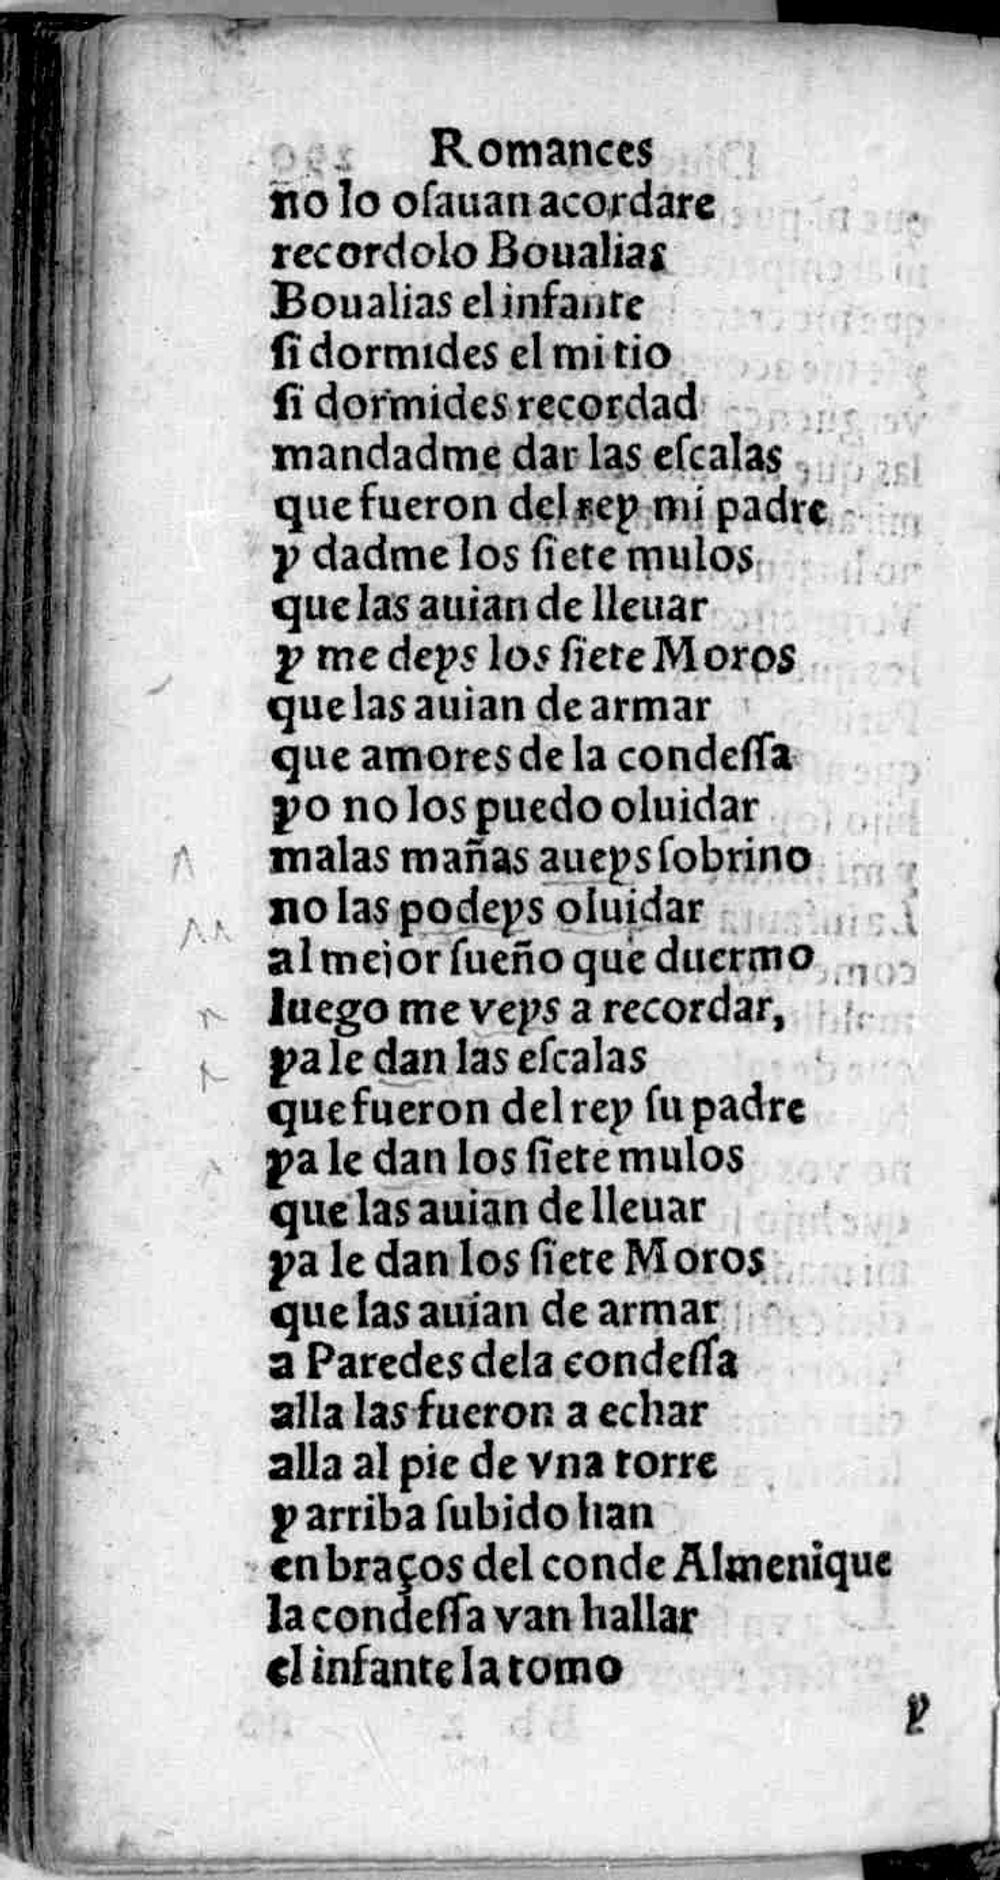 Romances
no lo oſauan acordare
recordolo Boualias
Boualias el infante
ſi dormides el mi tio
ſi dormides recordad
mandadme dar las eſcalas
que fueron del rey mi padre
y dadme los ſiete mulos
que las auian de lleuar
y me deys los ſiete Moros
que las auian de armar
que amores de la condeſſa
yo no los puedo oluidar
malas mañas aueys ſobrino
no las podeys oluidar
al mejor ſueño que duermo
luego me veys a recordar,
ya le dan las eſcalas
que fueron del rey ſu padre
ya le dan los ſiete mulos
que las auian de lleuar
ya le dan los ſiete Moros
que las auian de armar
a Paredes dela condeſſa
alla las fueron a echar
alla al pie de vna torre
y arriba ſubido han
en braços del conde Almenique
la condeſſa van hallar
el infante la tomo
y